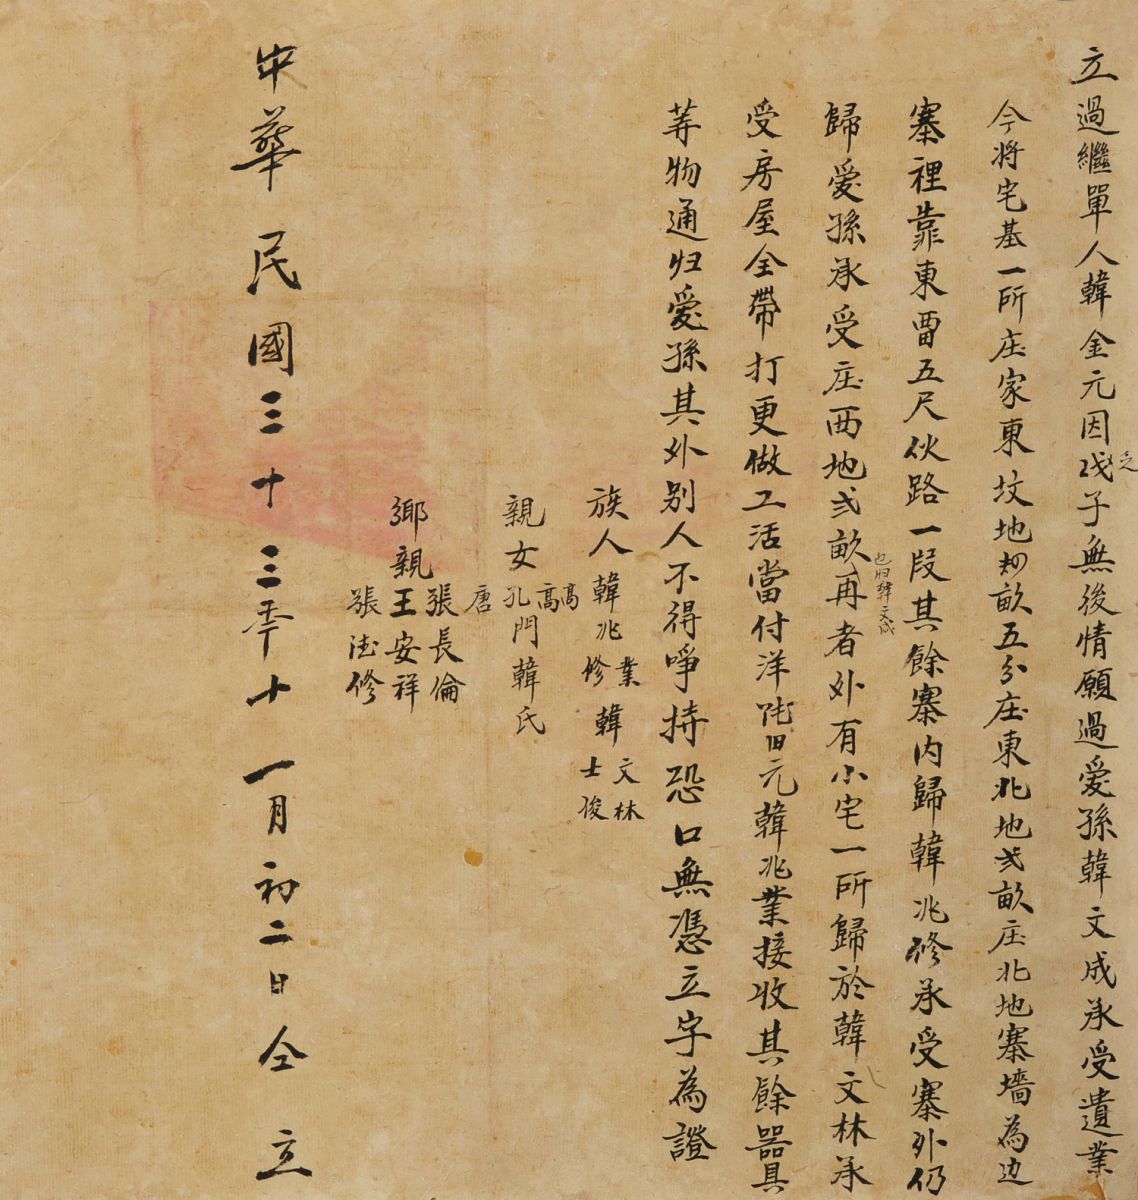 立過繼單人韓金元因乏子無後情願過愛孫韓文成承受遺業
今将宅基一所庄家東坟地畝五分庄東北地弍畝庄北地寨墻為边
寨裡靠東畱五尺伙路一段其餘寨内歸韓兆修承受寨外仍
歸愛孫承受庄西地弍畝再者外有小宅一所歸於韓文林承
也归韓文成
受房屋全帶打更做工活當付洋元韓兆業接收其餘器具
荨物通归愛孫其外别人不得啼持恐口無憑立字為證
族人韓兆修業韓士俊文林
親女孔高唐門韓氏
鄉親張長倫王安祥張法修
中華民國三十三年十一月初二日仝立